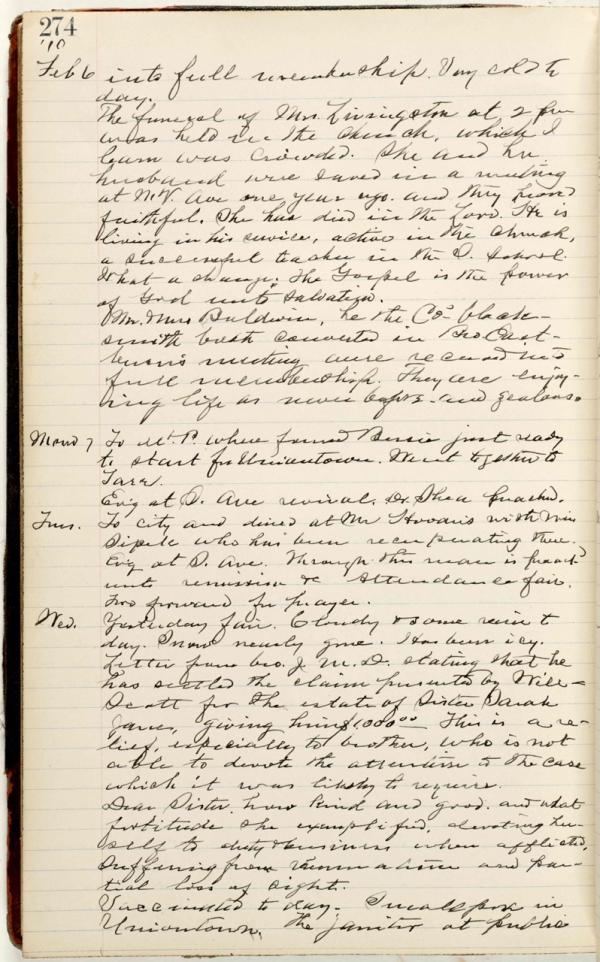 274
'10
Feb 6 into full membership. Very cold to
day.
The funeral of Mrs. Livingston at 2 pm
was held in the church, which I
learn was crowded. She and her
husband were saved in a meeting
at N.V. Ave one year ago. and they lived
faithful. She has died in the Lord. He is
living in his service, active in the church,
a successful teacher in the S. School.
What a change. The Gospel is the power
of God unto salvation.
Mr. Mrs Baldwin, he the Co. black-
smith both converted in Bro East-
burn's meeting were received into
full membership. They are enjoy-
ing life as never before and zealous.
Mond 7 To Mt. P. where found Bessie just ready
to start for Uniontown. Went together to
Tarr.
Evig at S. Ave revival. Dr. Shea preached.
Tues. To city and dined at Mr Hoovans with Miss
Sipele who has been recuperating there.
Evig at S. Ave. Through this man is preach'd
unto remission &c Attendance fair.
Two forward for prayer.
Wed. Yesterday fair. Cloudy & some rain to
day. Snow nearly gone. Has been icy.
Letter from bro. J. M. D. stating that he
has settled the claim presented by Will
Scott for the estate of Sister Sarah
Jane, giving him $1000.00 This is a re-
lief, especially to brother, who is not
able to devote the attention to the case
which it was likely to require.
Dear Sister. how kind and good. and what
fortitude she exemplified, devoting her-
self to duty & business when afflicted,
suffering from rheumatism and par-
tial loss of sight.
Vaccinated to day. Smallpox in
Uniontown. The janitor at public